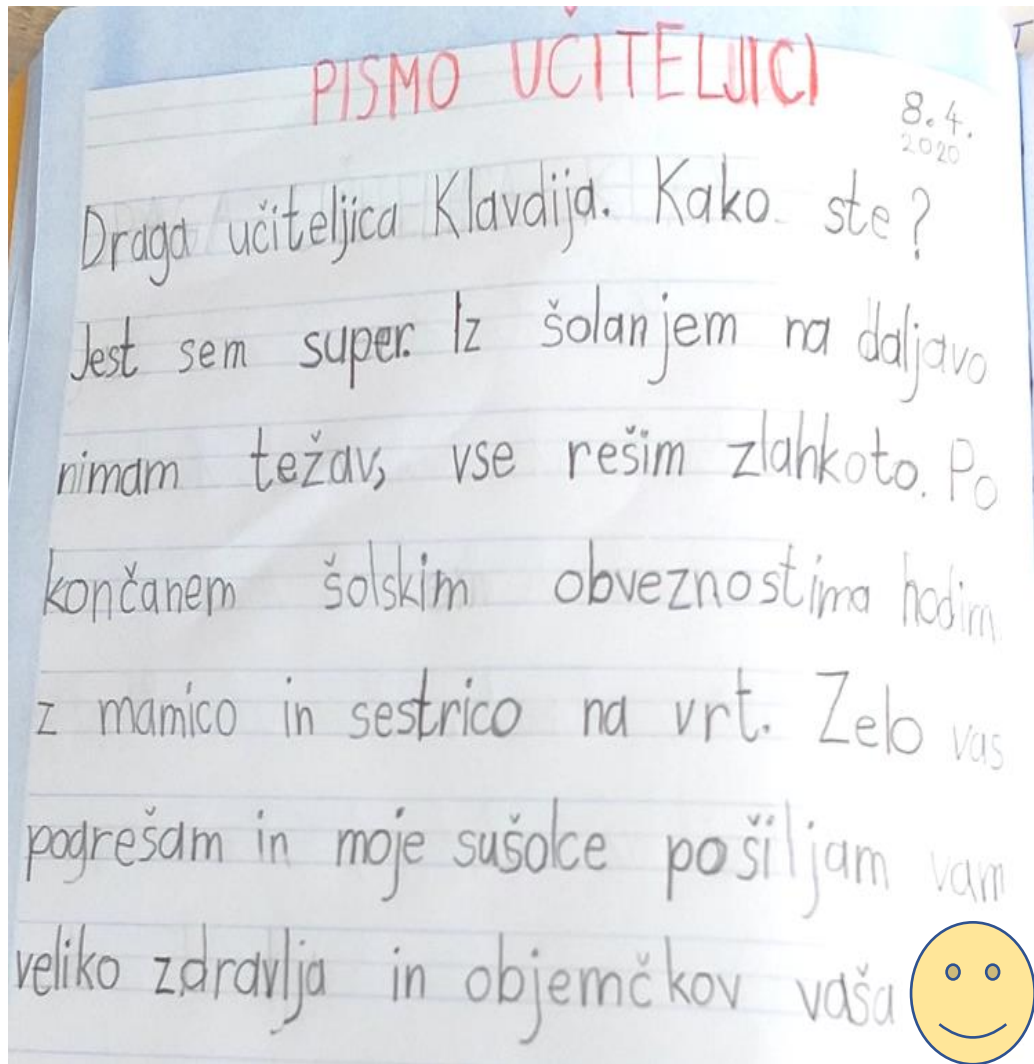 PISMO UČITELJICI
8.4.
2020
Draga učiteljica Klavdija. Kako ste?
Jest sem super. Iz šolanjem na daljavo
nimam težav, vse rešim zlahkoto. Po
končanem šolskim obveznostima hodim
z mamico in sestrico na vrt. Zelo vas
pogrešam in moje sušolce pošiljam vam
veliko zdravlja in objemčkov vaša